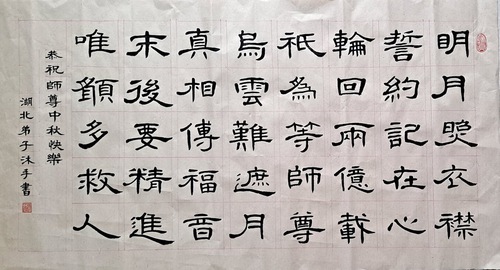 明月照衣襟
誓約記在心
輪回兩億載
衹為等師尊
烏雲難遮月
真相傳福音
末後要精進
唯願多救人
恭祝師尊中秋快樂
湖北弟子沐手書